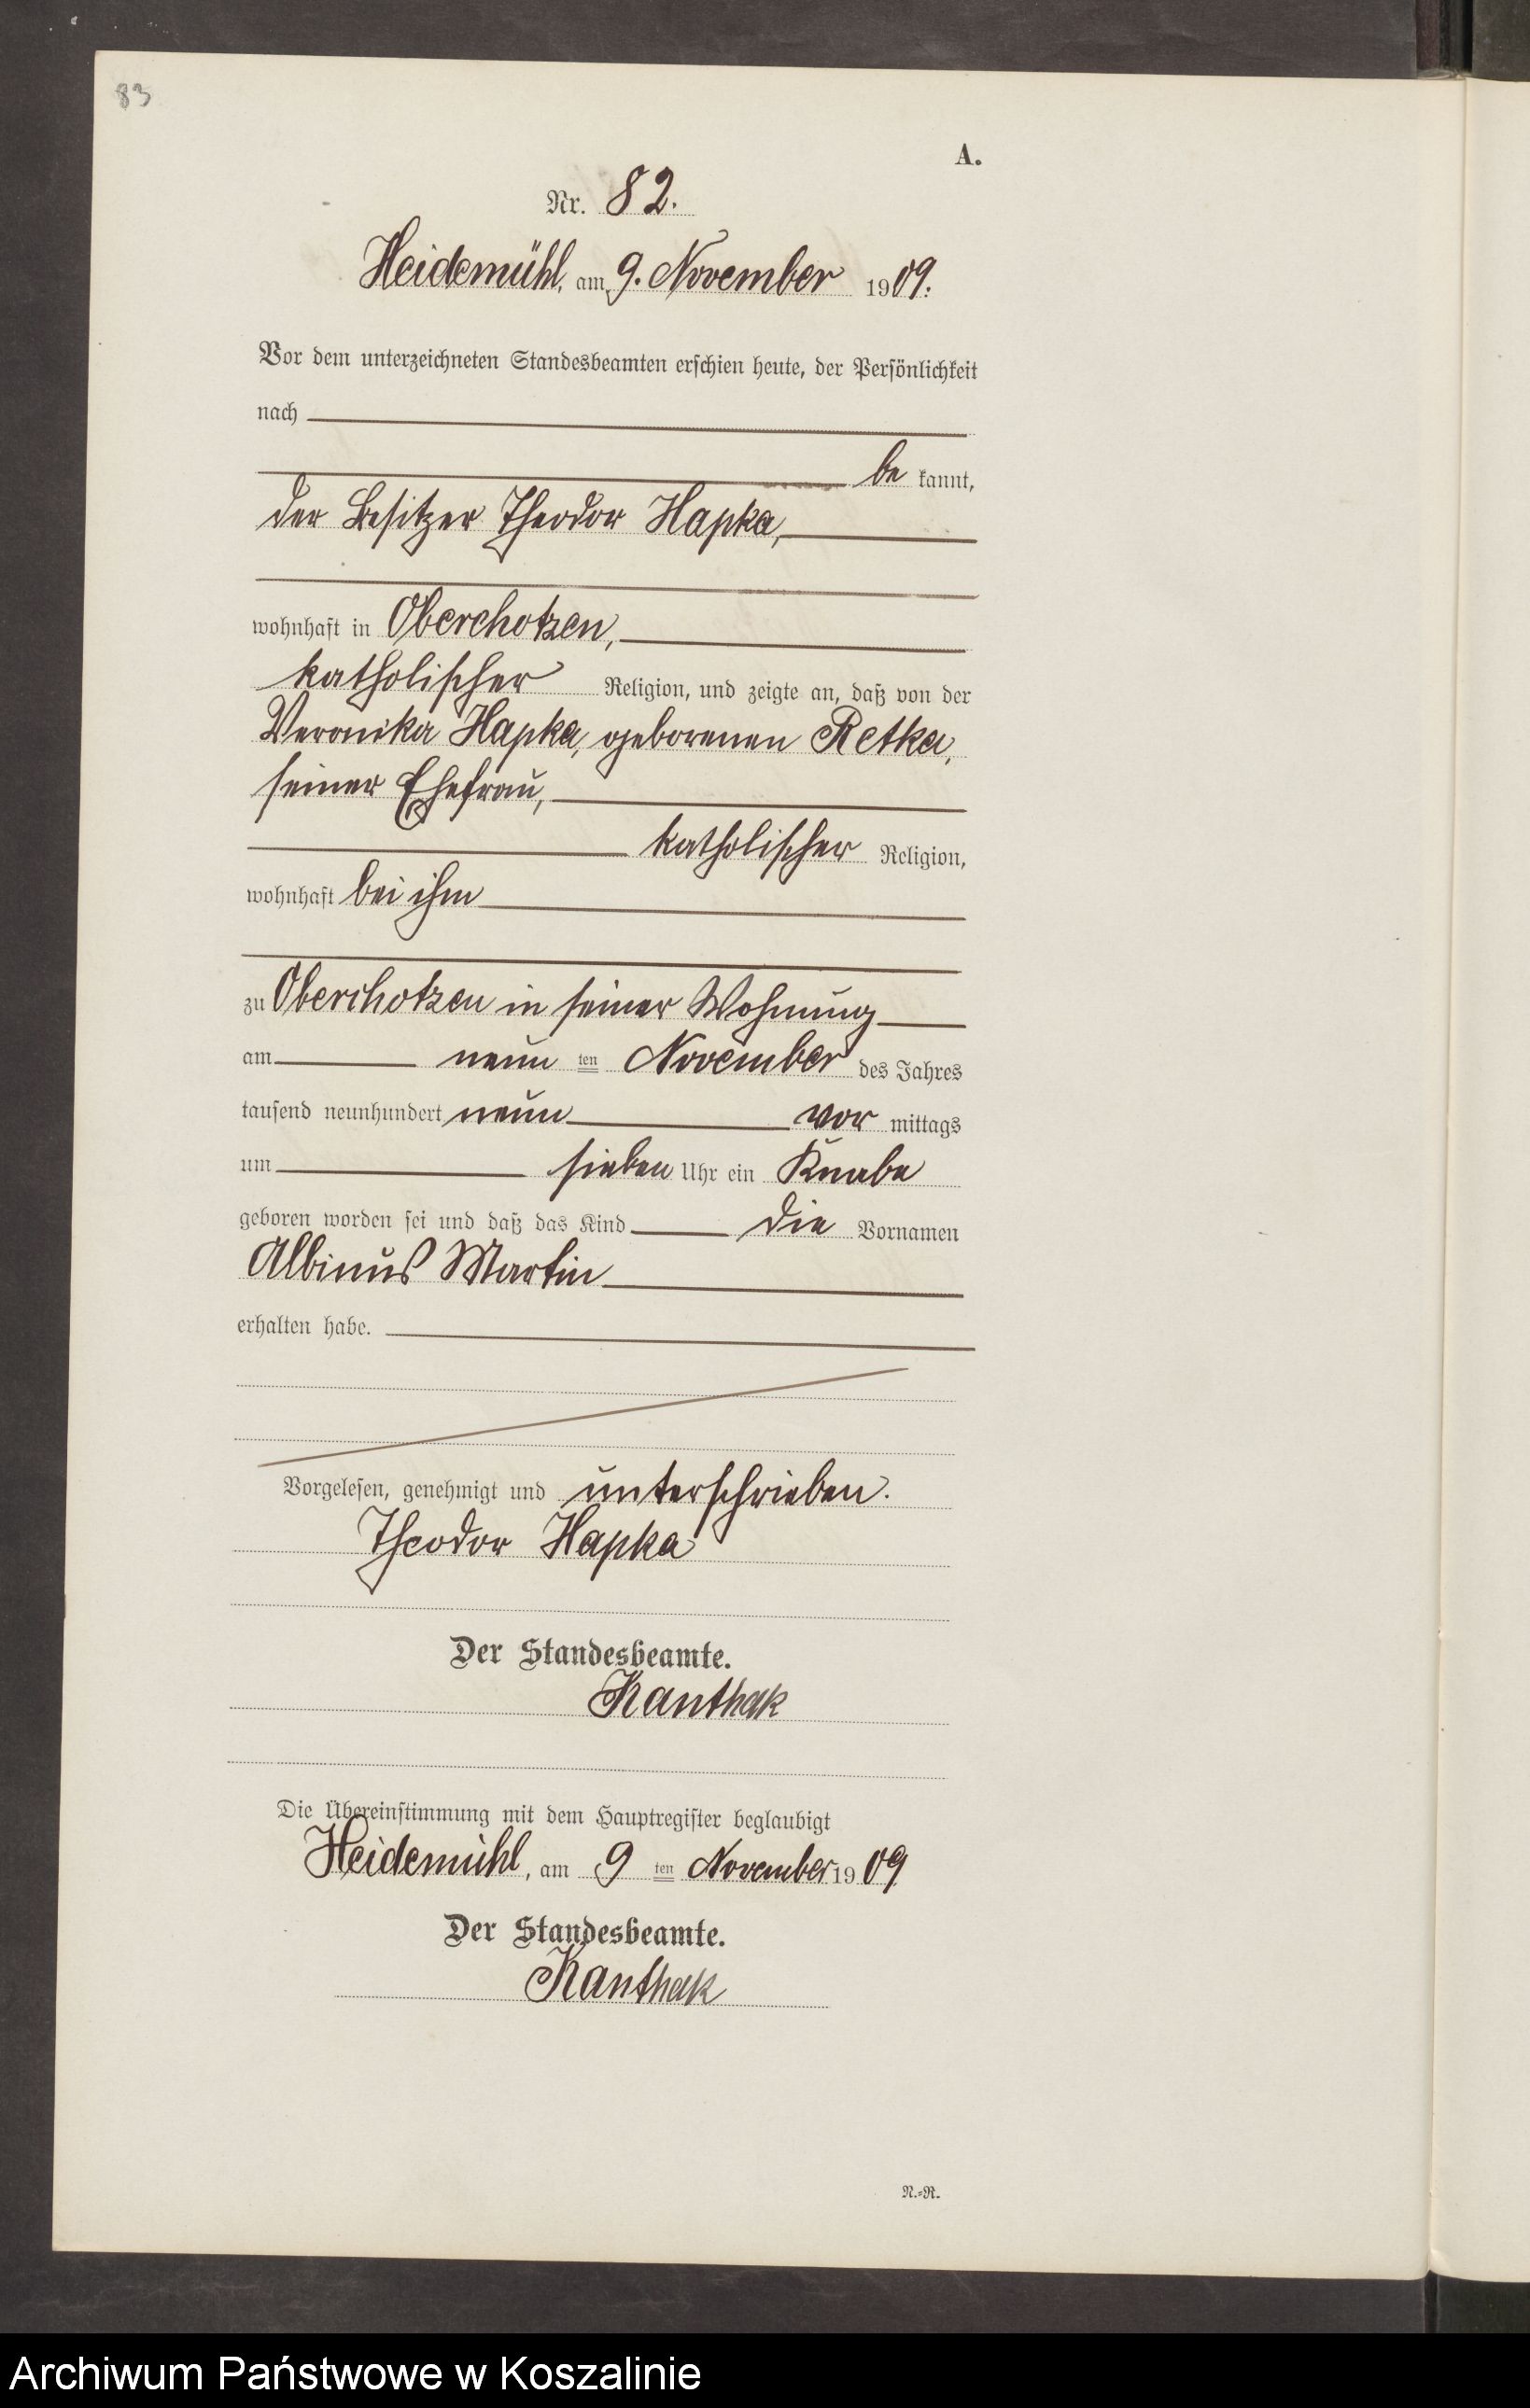 83
A.
Nr. 82.
Heidemühl, am 9. November 1909.
Vor dem unterzeichneten Standesbeamten erschien heute, der Persönlichkeit
nach
be kannt,
der Besitzer Theodor Hapka,
wohnhaft in Oberchotzen,
katholischer Religion, und zeigte an, daß von der
Veronika Hapka, geborenen Retka,
seiner Ehefrau,
katholischer Religion,
wohnhaft bei ihm
zu Oberchotzen in seiner Wohnung
am neun ten November des Jahres
tausend neunhundert neun vor mittags
um sieben Uhr ein Knabe
geboren worden sei und daß das Kind die Vornamen
Albinus Martin
erhalten habe.
Vorgelesen, genehmigt und unterschrieben.
Theodor Hapka
Der Standesbeamte.
Kanthak
Die Übereinstimmung mit dem Hauptregister beglaubigt
Heidemühl, am 9 ten November 1909
Der Standesbeamte.
Kanthak
N.-R.
Archiwum Państwowe w Koszalinie